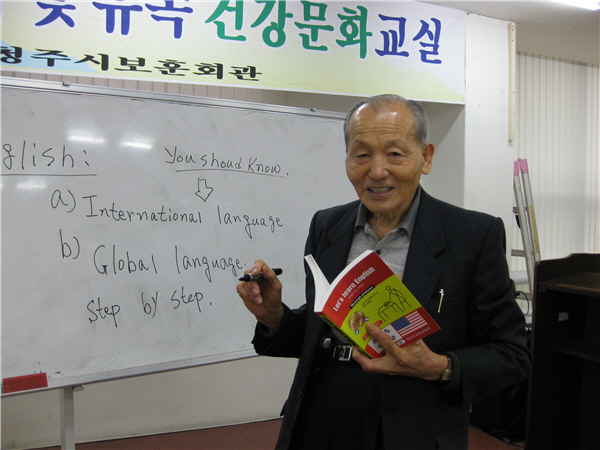 및 유족 건강문화교실
청주시보훈회관
glish:
You shoud Know.
a) International language
b) Global language.
Step by Step.
Let's learn English